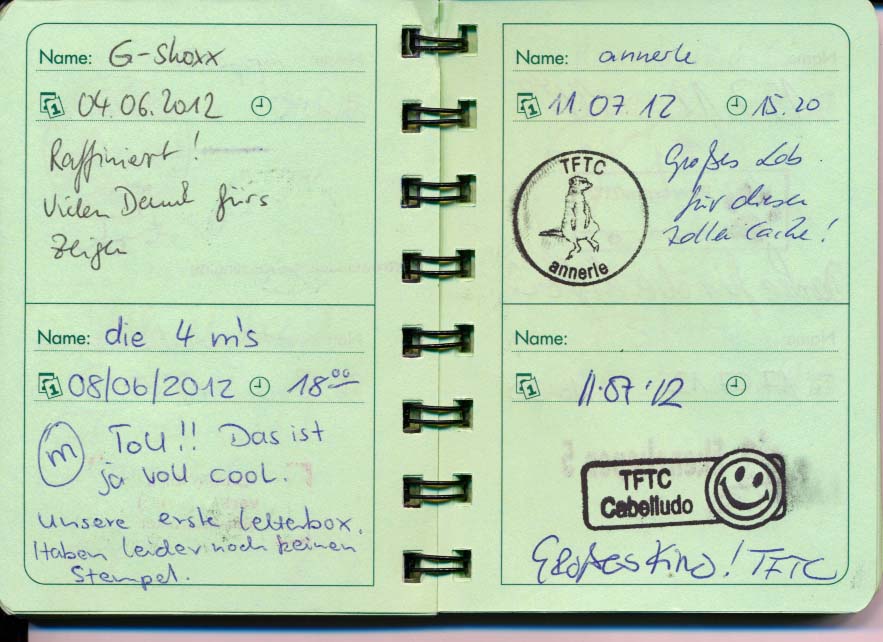 Name: G-shoxx
04.06.2012
Raffiniert!
Vielen Dank fürs
Zeigen
Name: die 4 m's
08/06/2012 18⁰⁰
m Toll!! Das ist
ja voll cool.
Unsere erste Letterbox.
Haben leider noch keinen
Stempel.
Name: annerle
11.07.12 15.20
TFTC
annerle
Großes Lob
für diesen
tollen Cache!
Name:
11.07.'12
TFTC
Cabelludo
Großes Kino! TFTC